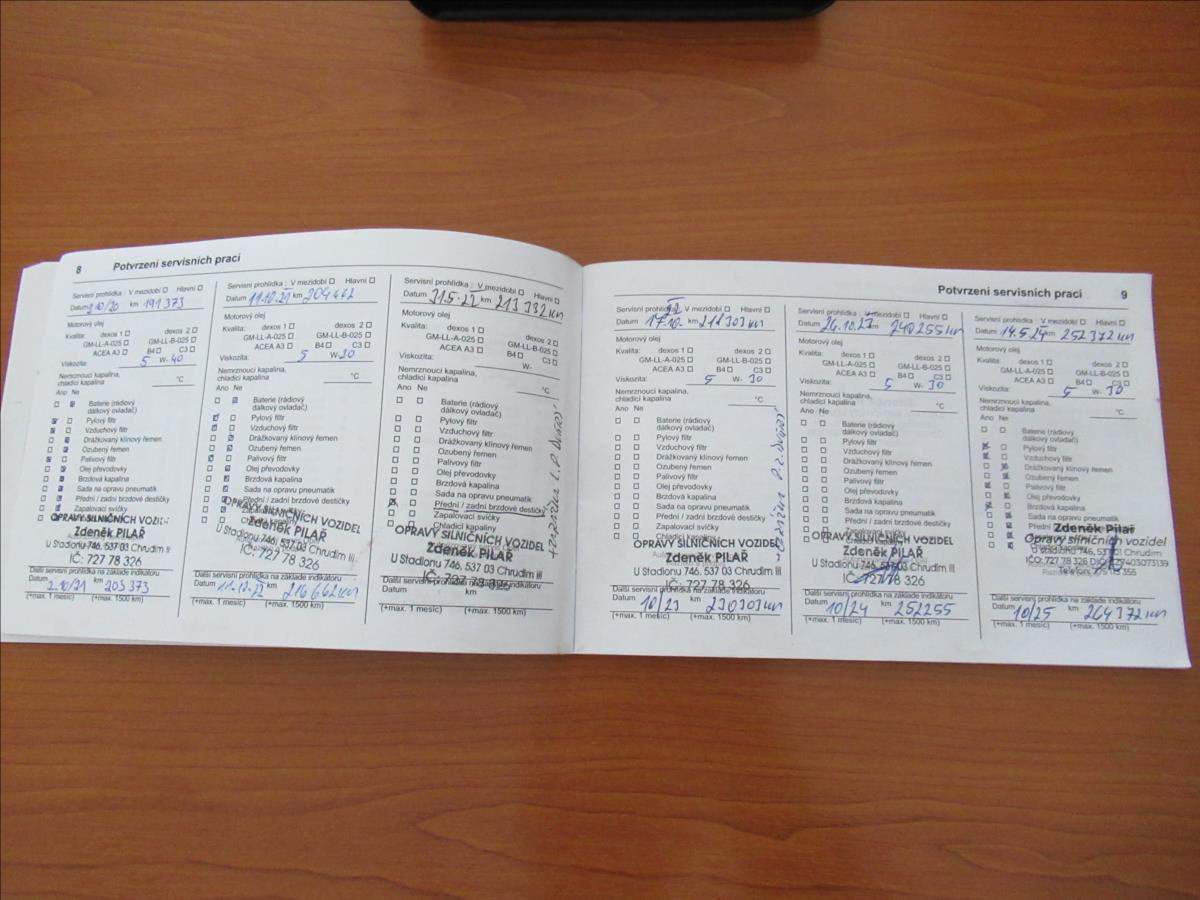 8 Potvrzení servisních prací
Servisní prohlídka : V mezidobí Hlavní
Datum 2.10/20 km 191 373
Motorový olej
Kvalita: dexos 1 dexos 2
GM-LL-A-025 GM-LL-B-025
ACEA A3 B4 C3
Viskozita: 5 W- 40
Nemrznoucí kapalina,
chladicí kapalina °C
Ano Ne
Baterie (rádiový
dálkový ovladač)
Pylový filtr
Vzduchový filtr
Drážkovaný klínový řemen
Ozubený řemen
Palivový filtr
Olej převodovky
Brzdová kapalina
Sada na opravu pneumatik
Přední / zadní brzdové destičky
Zapalovací svíčky
OPRAVY SILNIČNÍCH VOZIDEL
Zdeněk PILAŘ
U Stadionu 746, 537 03 Chrudim II
IČ: 727 78 326
Další servisní prohlídka na základě indikátoru
Datum 2.10/21 km 203 373
(+max. 1 měsíc) (+max. 1500 km)
Servisní prohlídka : V mezidobí Hlavní
Datum 11.10.21 km 204 662
Motorový olej
Kvalita: dexos 1 dexos 2
GM-LL-A-025 GM-LL-B-025
ACEA A3 B4 C3
Viskozita: 5 W- 30
Nemrznoucí kapalina,
chladicí kapalina °C
Ano Ne
Baterie (rádiový
dálkový ovladač)
Pylový filtr
Vzduchový filtr
Drážkovaný klínový řemen
Ozubený řemen
Palivový filtr
Olej převodovky
Brzdová kapalina
Sada na opravu pneumatik
Přední / zadní brzdové destičky
OPRAVY SILNIČNÍCH VOZIDEL
Zdeněk PILAŘ
U Stadionu 746, 537 03 Chrudim III
IČ: 727 78 326
Další servisní prohlídka na základě indikátoru
Datum 11.10.22 km 216 662 km
(+max. 1 měsíc) (+max. 1500 km)
Servisní prohlídka : V mezidobí Hlavní
Datum 31.5.22 km 213 332 km
Motorový olej
Kvalita: dexos 1 dexos 2
GM-LL-A-025 GM-LL-B-025
ACEA A3 B4 C3
Viskozita: W-
Nemrznoucí kapalina,
chladicí kapalina °C
Ano Ne
Baterie (rádiový
dálkový ovladač)
Pylový filtr
Vzduchový filtr
Drážkovaný klínový řemen
Ozubený řemen
Palivový filtr
Olej převodovky
Brzdová kapalina
Sada na opravu pneumatik
Přední / zadní brzdové destičky
Zapalovací svíčky
Chladicí kapalina
OPRAVY SILNIČNÍCH VOZIDEL
Zdeněk PILAŘ
U Stadionu 746, 537 03 Chrudim III
IČ: 727 78 326
Další servisní prohlídka na základě indikátoru
Datum km
(+max. 1 měsíc) (+max. 1500 km)
Potvrzení servisních prací 9
Servisní prohlídka : V mezidobí Hlavní
Datum 17.10. 22 km 218 303 km
Motorový olej
Kvalita: dexos 1 dexos 2
GM-LL-A-025 GM-LL-B-025
ACEA A3 B4 C3
Viskozita: 5 W- 30
Nemrznoucí kapalina,
chladicí kapalina °C
Ano Ne
Baterie (rádiový
dálkový ovladač)
Pylový filtr
Vzduchový filtr
Drážkovaný klínový řemen
Ozubený řemen
Palivový filtr
Olej převodovky
Brzdová kapalina
Sada na opravu pneumatik
Přední / zadní brzdové destičky
Zapalovací svíčky
Chladicí kapalina
OPRAVY SILNIČNÍCH VOZIDEL
Zdeněk PILAŘ
U Stadionu 746, 537 03 Chrudim III
IČ: 727 78 326
Další servisní prohlídka na základě indikátoru
Datum 10/23 km 230303 km
(+max. 1 měsíc) (+max. 1500 km)
Servisní prohlídka : V mezidobí Hlavní
Datum 26.10.23 km 240255 km
Motorový olej
Kvalita: dexos 1 dexos 2
GM-LL-A-025 GM-LL-B-025
ACEA A3 B4 C3
Viskozita: 5 W- 30
Nemrznoucí kapalina,
chladicí kapalina °C
Ano Ne
Baterie (rádiový
dálkový ovladač)
Pylový filtr
Vzduchový filtr
Drážkovaný klínový řemen
Ozubený řemen
Palivový filtr
Olej převodovky
Brzdová kapalina
Sada na opravu pneumatik
Přední / zadní brzdové destičky
Zapalovací svíčky
OPRAVY SILNIČNÍCH VOZIDEL
Zdeněk PILAŘ
U Stadionu 746, 537 03 Chrudim III
IČ: 727 78 326
Další servisní prohlídka na základě indikátoru
Datum 10/24 km 252255
(+max. 1 měsíc) (+max. 1500 km)
Servisní prohlídka : V mezidobí Hlavní
Datum 14.5.24 km 252 372 km
Motorový olej
Kvalita: dexos 1 dexos 2
GM-LL-A-025 GM-LL-B-025
ACEA A3 B4 C3
Viskozita: 5 W- 30
Nemrznoucí kapalina,
chladicí kapalina °C
Ano Ne
Baterie (rádiový
dálkový ovladač)
Pylový filtr
Vzduchový filtr
Drážkovaný klínový řemen
Ozubený řemen
Palivový filtr
Olej převodovky
Brzdová kapalina
Sada na opravu pneumatik
Zdeněk Pilař
Opravy silničních vozidel
U Stadionu 746, 537 01 Chrudim
Další servisní prohlídka na základě indikátoru
Datum 10/25 km 264 372 km
(+max. 1 měsíc) (+max. 1500 km)